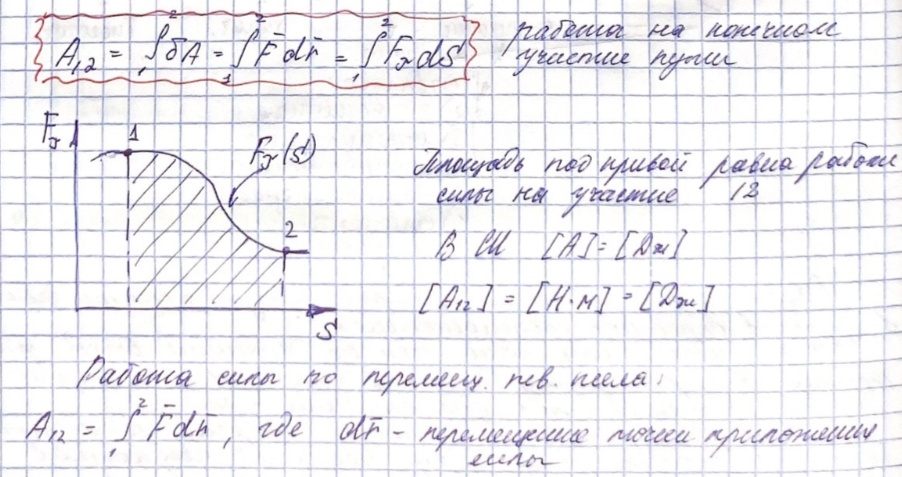 A₁₂ = ∫₁² δA = ∫₁² F̄ dr̄ = ∫₁² Fτ dS работа на конечном
участке пути
Fτ 1 Fτ(S) 2 S
Площадь под кривой равна работе
силы на участке 12
В СИ [A] = [Дж]
[A₁₂] = [Н·м] = [Дж]
Работа силы по перемещ. тв. тела:
A₁₂ = ∫₁² F̄ dr̄, где dr̄ - перемещение точки приложения
силы